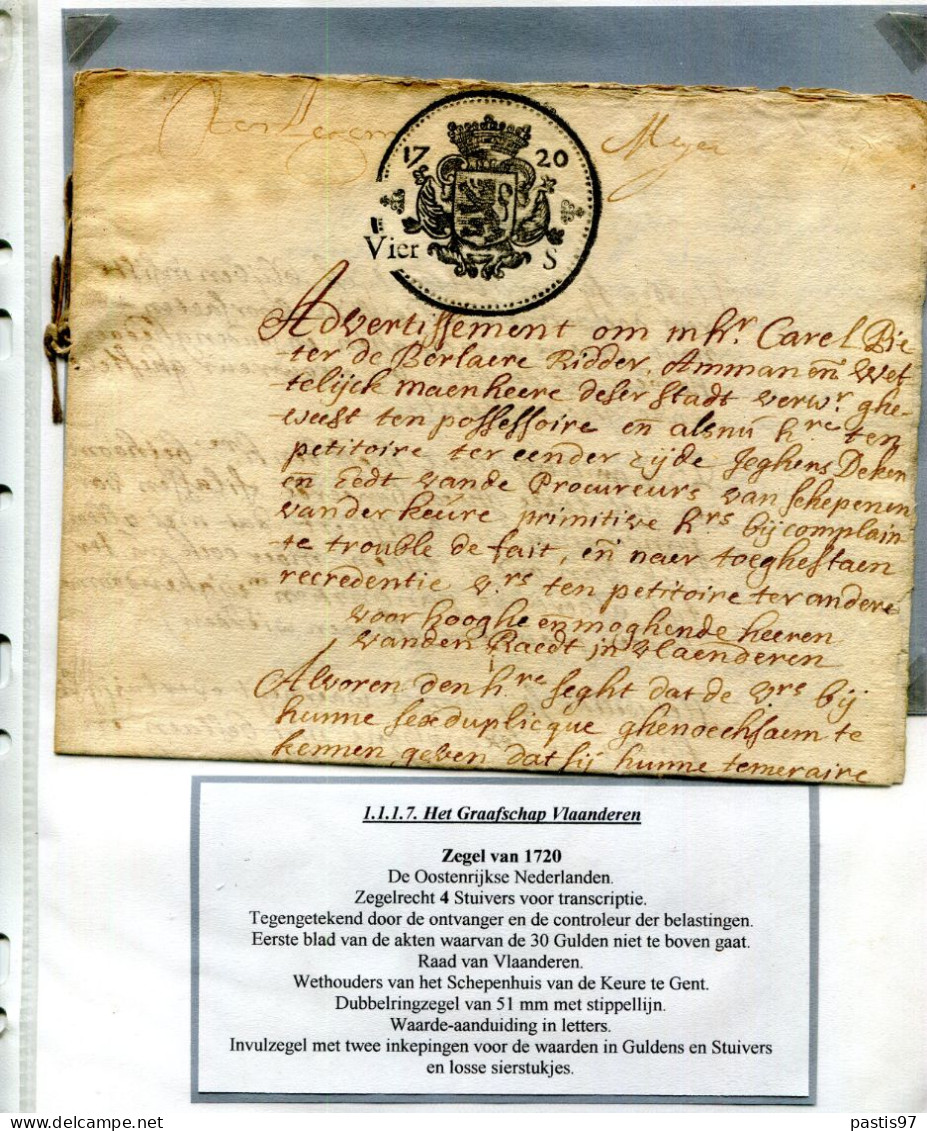 17 20
Meyer
Vier S
Advertissement om mhr. Carel Pie
ter de Berlaere Ridder, Amman eñ wet
telijck maenheere deser stadt verwr. ghe
weest ten possessoire en alsnú hre ten
petitoire ter eender zijde Jeghens Deken
eñ Eedt vande Procureurs van schepenen
vander keúre primitive hrs bij complain
te trouble de fait, eñ naer toeghestaen
recredentie vrs ten petitoire ter andere
voor hooghe eñ moghende heeren
vanden Raedt in vlaenderen
Alvoren den hre seght dat de vrs bij
hunne sexduplicque ghenoechsaem te
kennen geven dat sij hunne temeraire
1.1.1.7. Het Graafschap Vlaanderen
Zegel van 1720
De Oostenrijkse Nederlanden.
Zegelrecht 4 Stuivers voor transcriptie.
Tegengetekend door de ontvanger en de controleur der belastingen.
Eerste blad van de akten waarvan de 30 Gulden niet te boven gaat.
Raad van Vlaanderen.
Wethouders van het Schepenhuis van de Keure te Gent.
Dubbelringzegel van 51 mm met stippellijn.
Waarde-aanduiding in letters.
Invulzegel met twee inkepingen voor de waarden in Guldens en Stuivers
en losse sierstukjes.
delcampe.net
pastis97